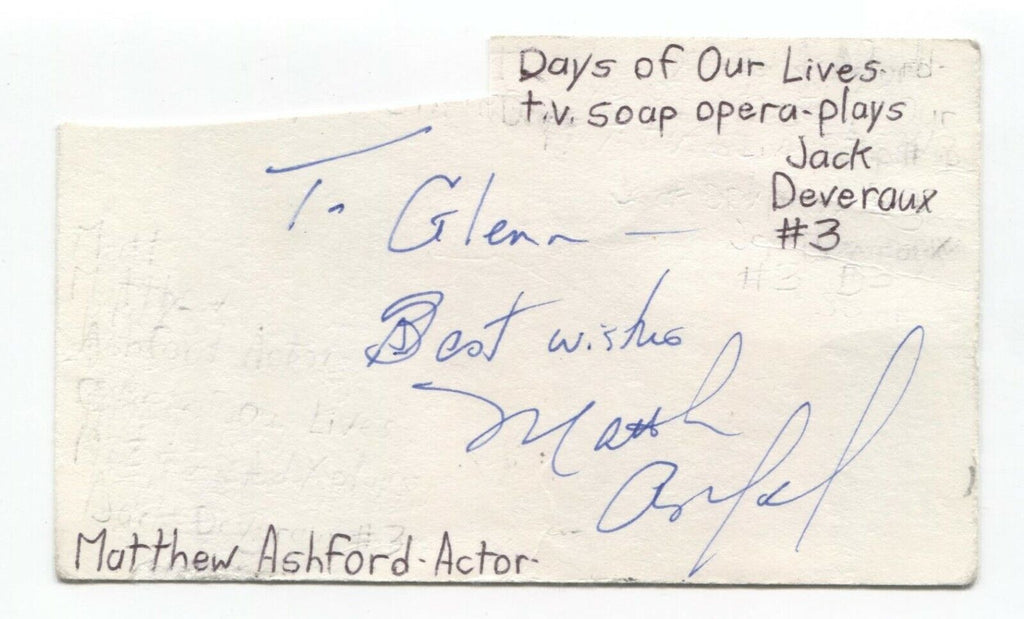 Days of Our Lives-
t.v. soap opera-plays
Jack
Deveraux
#3
To Glenn —
Best wishes
Matth
Ashford
Matthew Ashford-Actor-